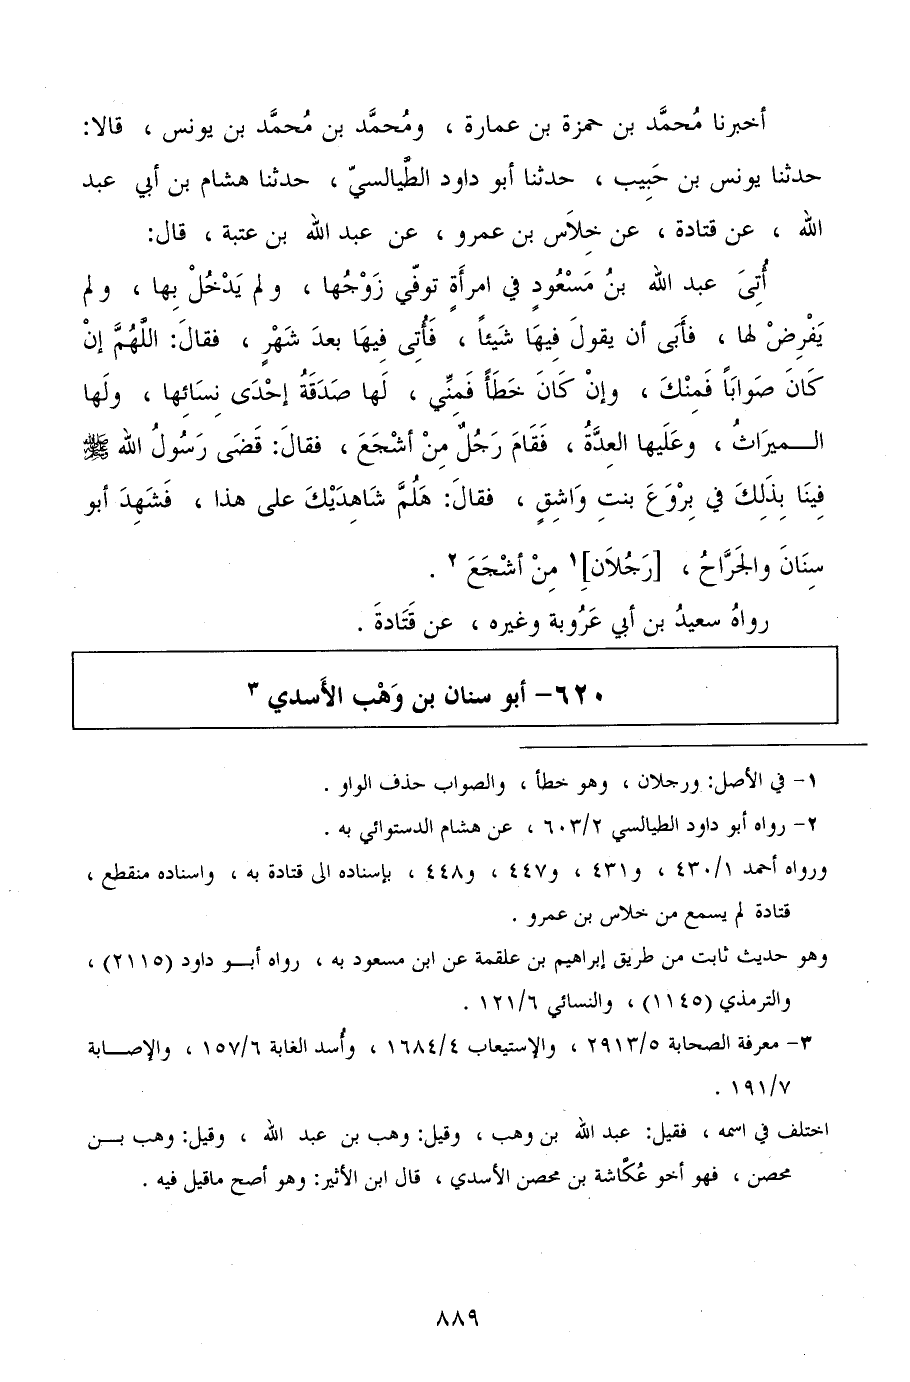 أخبرنا مُحمَّد بن حمزة بن عمارة ، ومُحمَّد بن مُحمَّد بن يونس ، قالا:
حدثنا يونس بن حَبِيب ، حدثنا أبو داود الطَّيالسيّ ، حدثنا هشام بن أبي عبد
الله ، عن قتادة ، عن خِلاَس بن عمرو ، عن عبد الله بن عتبة ، قال:
أُتِىَ عبد الله بنُ مَسْعُودٍ في امرأَةٍ توفّي زَوْجُها ، ولم يَدْخُلْ بِها ، ولم
يَفْرِضْ لها ، فأَبَى أن يقولَ فِيهَا شَيئاً ، فَأُتى فِيهَا بعدَ شَهْرٍ ، فقالَ: اللَّهُمَّ إنْ
كَانَ صَوابَاً فَمِنْكَ ، وإنْ كَانَ خَطَأً فَمِنِّي ، لَها صدَقَةُ إحْدَى نِسَائِها ، ولَها
الـميرَاثُ ، وعَلَيها العِدَّةُ ، فَقَامَ رَجُلٌ مِنْ أشْجَعَ ، فقالَ: قَضَى رَسُولُ الله ﷺ
فِينَا بِذَلِكَ في بِرْوَعَ بنتِ وَاشِقٍ ، فقالَ: هَلُمَّ شَاهِدَيْكَ على هذا ، فَشَهِدَ أبو
سِنَانَ والجَرَّاحُ ، [رَجُلاَنِ]١ مِنْ أشْجَعَ ٢ .
رواهُ سعيدُ بن أبي عَرُوبة وغيره ، عن قَتَادةَ .
٦٢٠- أبو سنان بن وَهْب الأَسدي ٣
١- في الأصل: ورجلان ، وهو خطأ ، والصواب حذف الواو .
٢- رواه أبو داود الطيالسي ٦٠٣/٢ ، عن هشام الدستوائي به .
ورواه أحمد ٤٣٠/١ ، و٤٣١ ، و٤٤٧ ، و٤٤٨ ، بإسناده الى قتادة به ، واسناده منقطع ،
قتادة لم يسمع من خلاس بن عمرو .
وهو حديث ثابت من طريق إبراهيم بن علقمة عن ابن مسعود به ، رواه أبـو داود (٢١١٥) ،
والترمذي (١١٤٥) ، والنسائي ١٢١/٦ .
٣- معرفة الصحابة ٢٩١٣/٥ ، والإستيعاب ١٦٨٤/٤ ، وأُسد الغابة ١٥٧/٦ ، والإصـابة
١٩١/٧ .
اختلف في اسمه ، فقيل: عبد الله بن وهب ، وقيل: وهب بن عبد الله ، وقيل: وهب بـن
محصن ، فهو أخو عُكّاشة بن محصن الأسدي ، قال ابن الأثير: وهو أصح ماقيل فيه .
٨٨٩